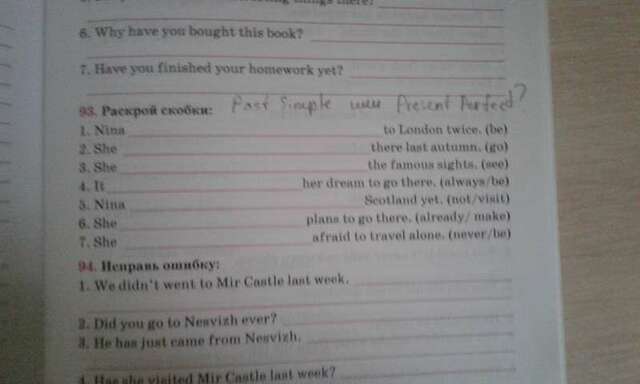 things there?
6. Why have you bought this book?
7. Have you finished your homework yet?
93. Раскрой скобки: Past Simple или Present Perfect?
1. Nina to London twice. (be)
2. She there last autumn. (go)
3. She the famous sights. (see)
4. It her dream to go there. (always/be)
5. Nina Scotland yet. (not/visit)
6. She plans to go there. (already/ make)
7. She afraid to travel alone. (never/be)
94. Исправь ошибку:
1. We didn't went to Mir Castle last week.
2. Did you go to Nesvizh ever?
3. He has just came from Nesvizh.
4. Has she visited Mir Castle last week?